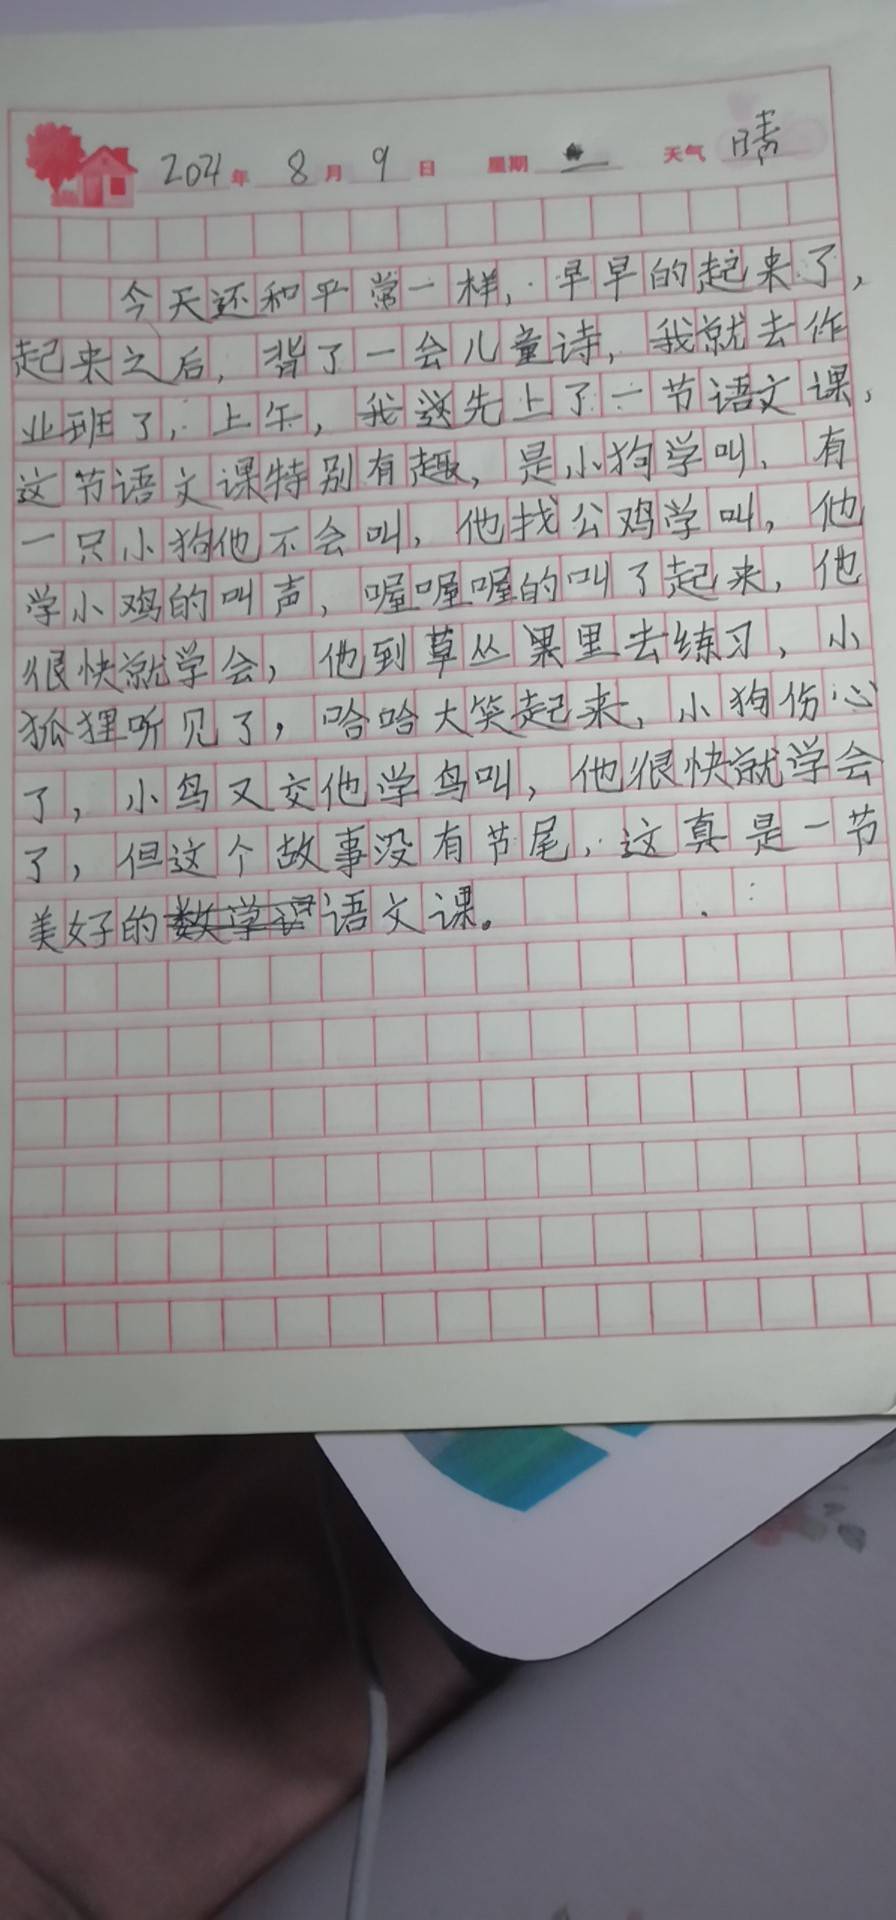 2021年 8月 9日 星期一 天气 晴
今天还和平常一样,早早的起来了,
起来之后,背了一会儿童诗,我就去作
业班了,上午,我先上了一节语文课,
这节语文课特别有趣,是小狗学叫,有
一只小狗他不会叫,他找公鸡学叫,他
学小鸡的叫声,喔喔喔的叫了起来,他
很快就学会,他到草丛果里去练习,小
狐狸听见了,哈哈大笑起来,小狗伤心
了,小鸟又交他学鸟叫,他很快就学会
了,但这个故事没有节尾,这真是一节
美好的语文课。